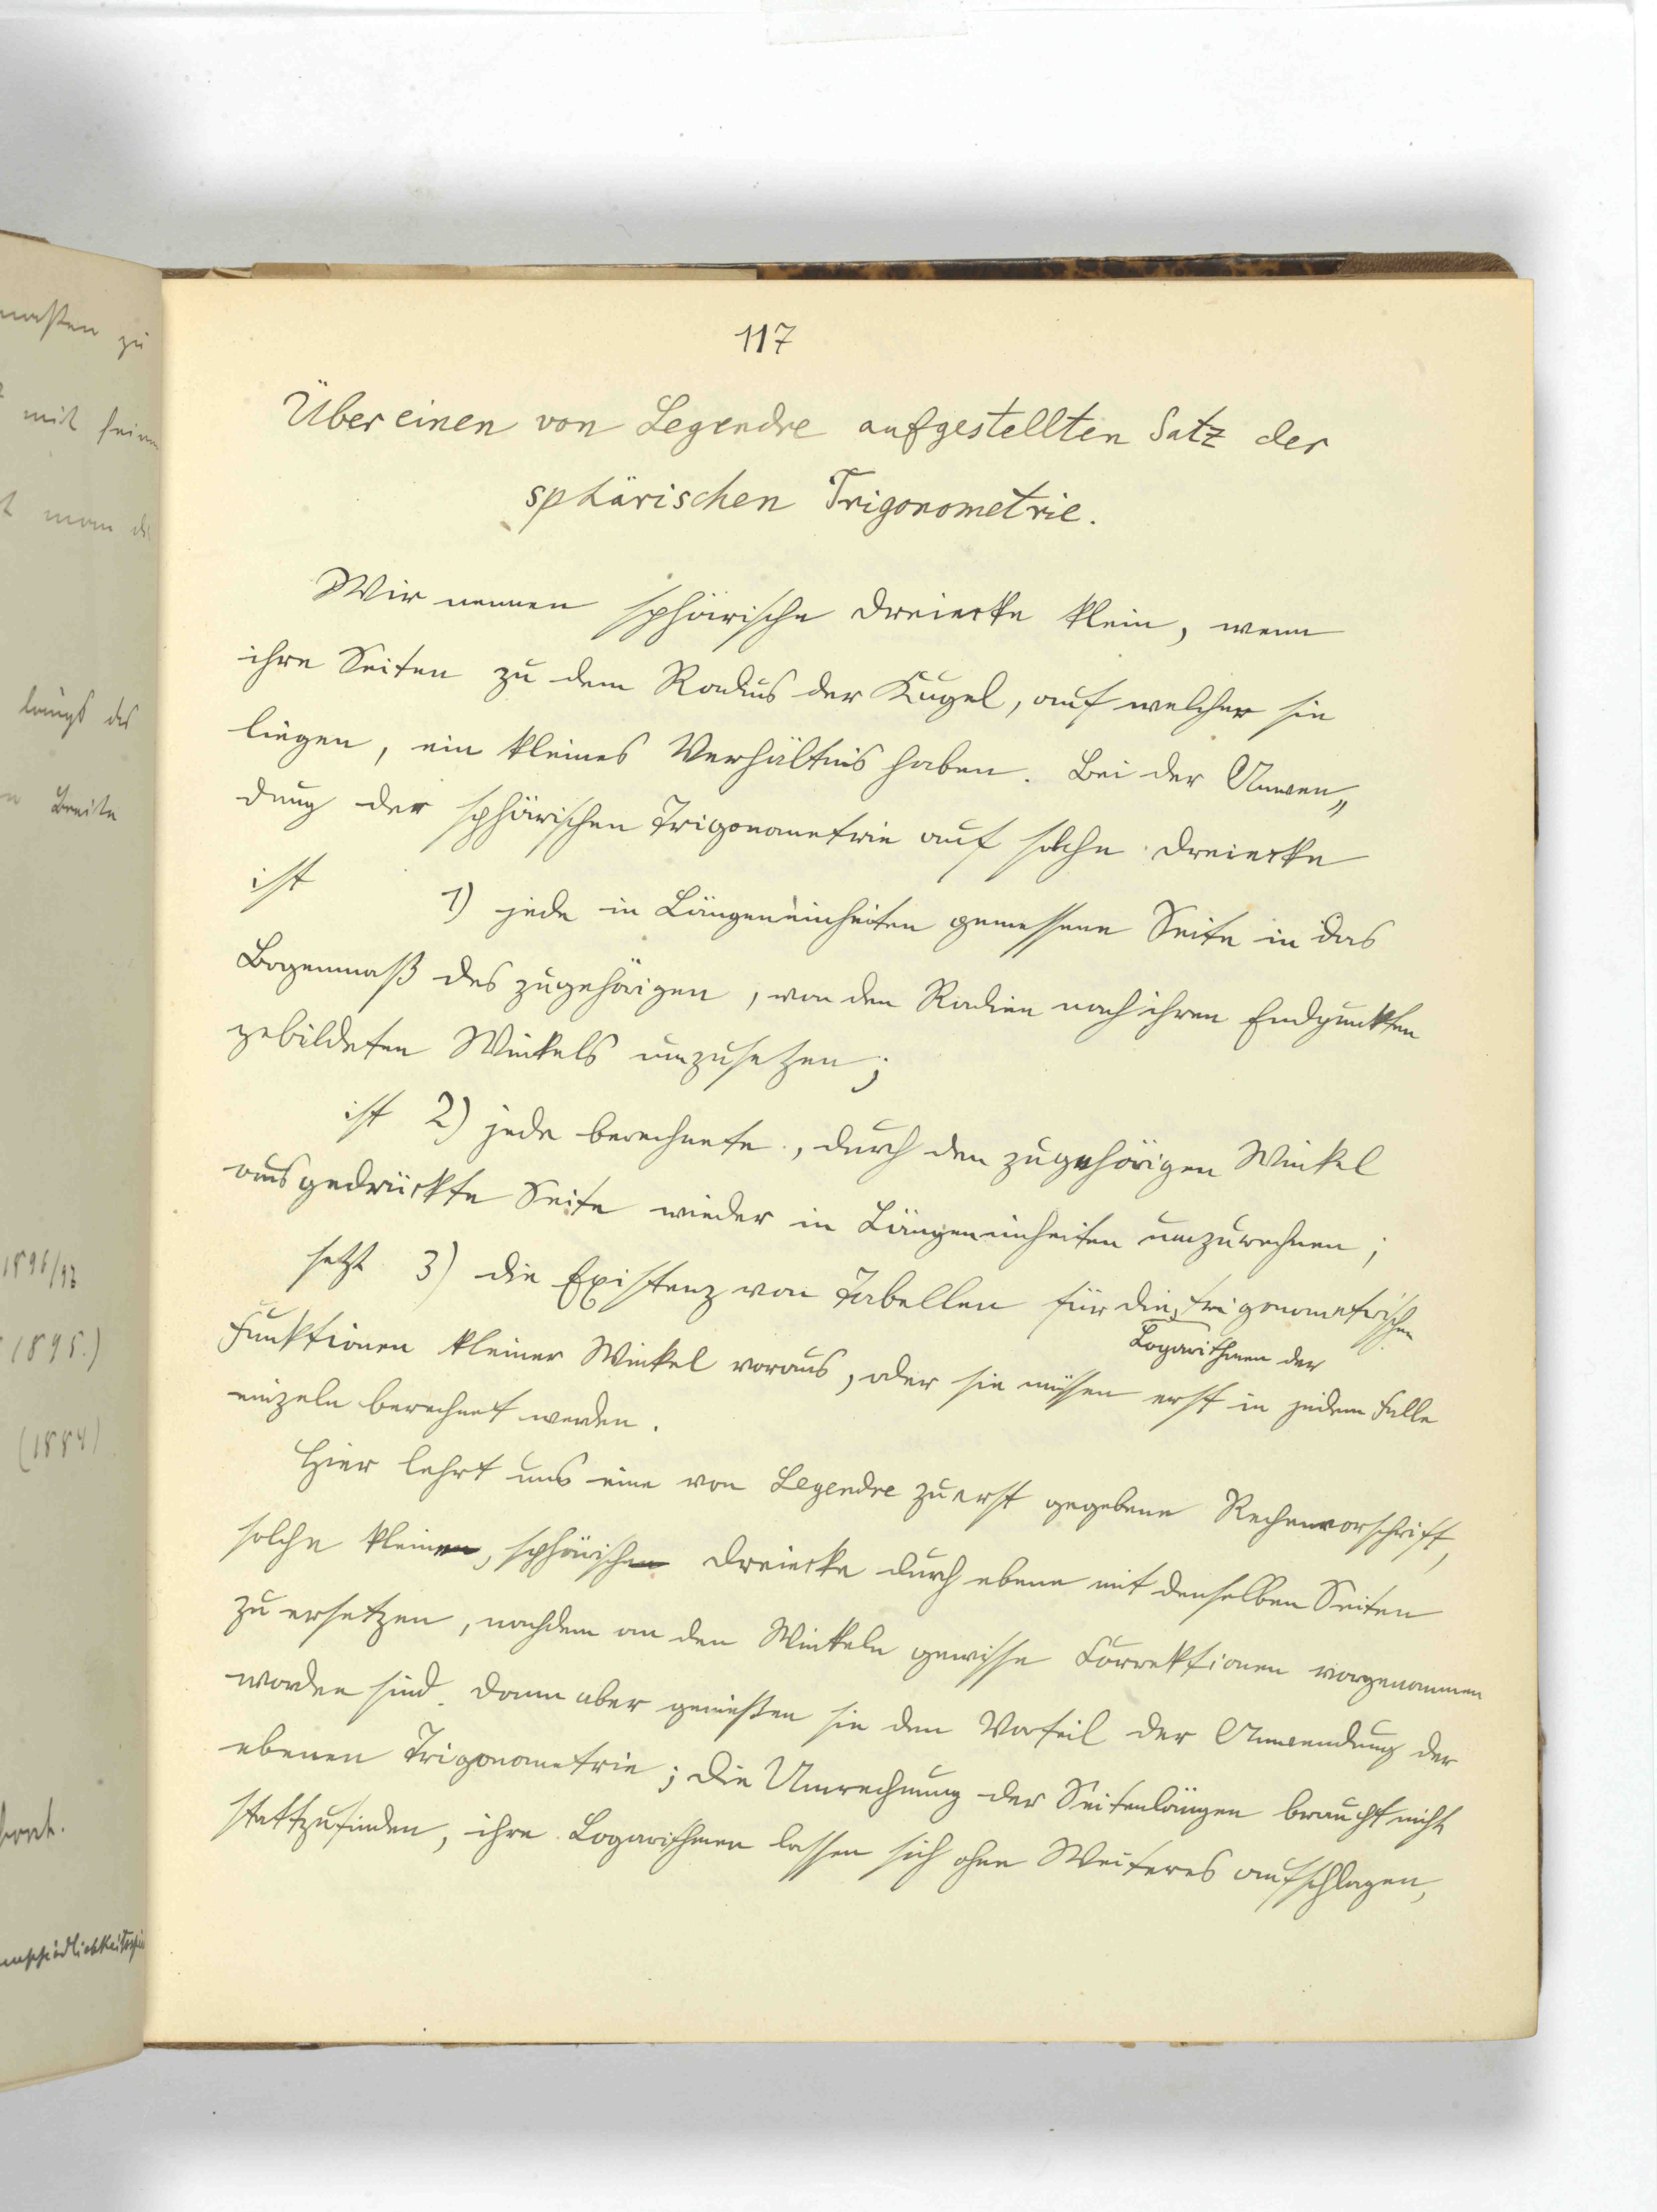 117
Über einen von Legendre aufgestellten Satz der
sphärischen Trigonometrie.
Wir nennen sphärische Dreiecke klein, wenn
ihre Seiten zu dem Radius der Kugel, auf welcher sie
liegen, ein kleines Verhältnis haben. Bei der Anwen„
dung der sphärischen Trigonometrie auf solche Dreiecke
ist 1) jede in Längeneinheiten gemessene Seite in das
Bogenmaß des zugehörigen, von den Radien nach ihren Endpunkten
gebildeten Winkels umzusetzen;
ist 2) jede berechnete, durch den zugehörigen Winkel
ausgedrückte Seite wieder in Längeneinheiten umzurechnen;
setzt 3) die Existenz von Tabellen für die trigonometrischen
Logarithmen der
Funktionen kleiner Winkel voraus, oder sie müssen erst in jedem Falle
einzeln berechnet werden.
Hier lehrt uns eine von Legendre zuerst gegebene Rechenvorschrift,
solche kleinen, sphärischen Dreiecke durch ebene mit denselben Seiten
zu ersetzen, nachdem an den Winkeln gewisse Korrektionen vorgenommen
worden sind. Dann aber genießen sie den Vorteil der Anwendung der
ebenen Trigonometrie; die Umrechnung der Seitenlängen braucht nicht
stattzufinden, ihre Logarithmen lassen sich ohne Weiteres aufschlagen,
zu
mit seinen
man
längs des
Breite
1896/97
1895.)
(1884)